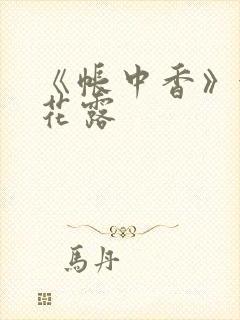 《帳中香》
花露
馬丹